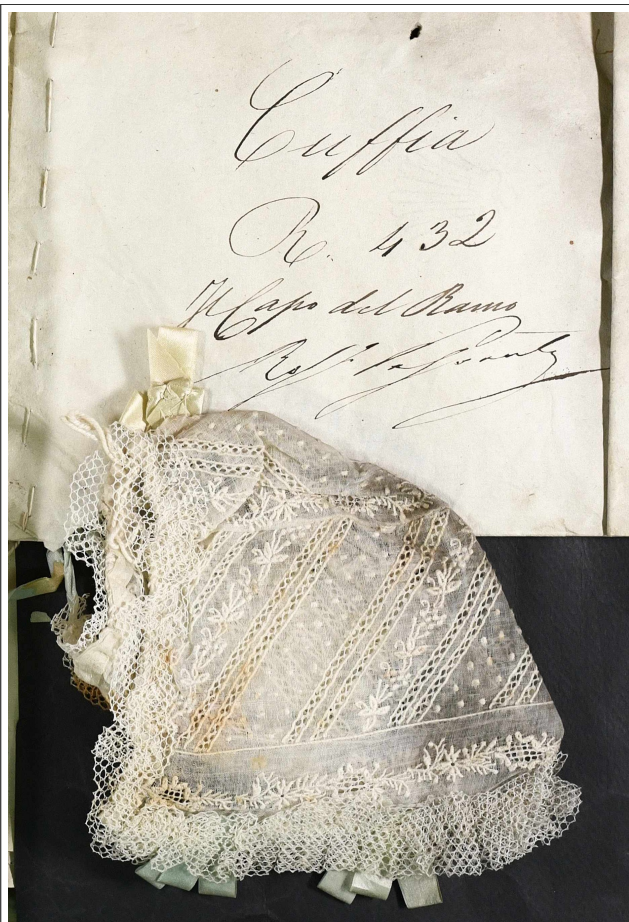 Cuffia
R. 432
Il Capo del Ramo